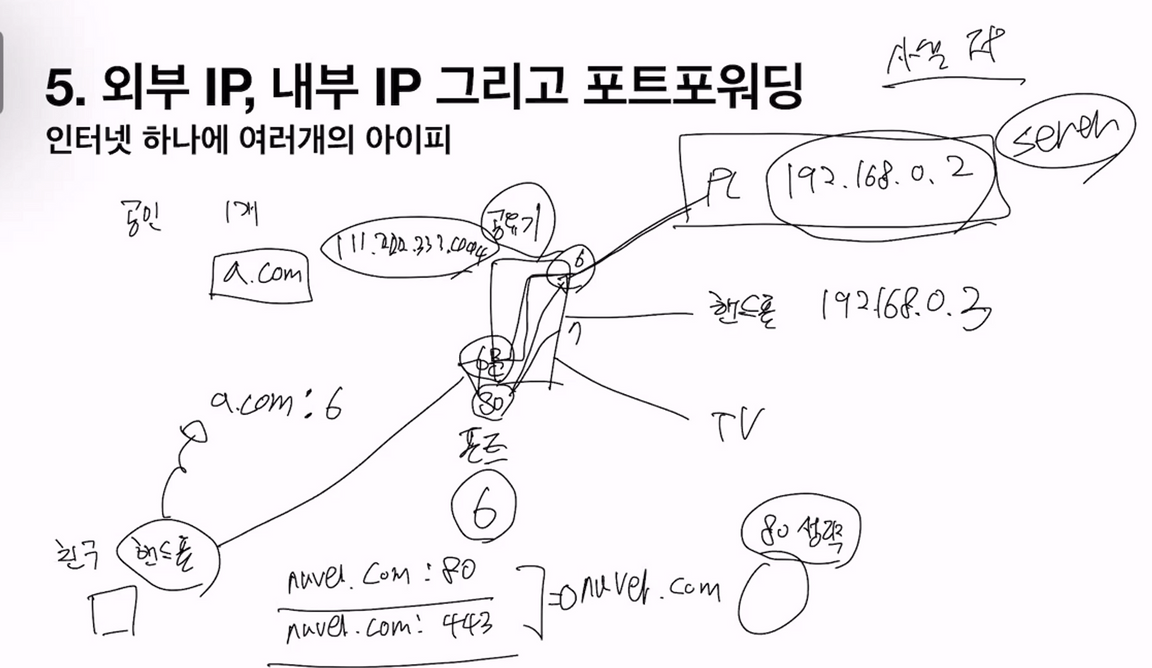 5. 외부 IP, 내부 IP 그리고 포트포워딩
인터넷 하나에 여러개의 아이피
사설
server
PC 192.168.0.2
공인 1개
공유기
a.com
6
핸드폰 192.168.0.3
7
80
a.com:6
TV
포트
6
80 생략
친구 핸드폰
naver.com:80
naver.com:443
naver.com